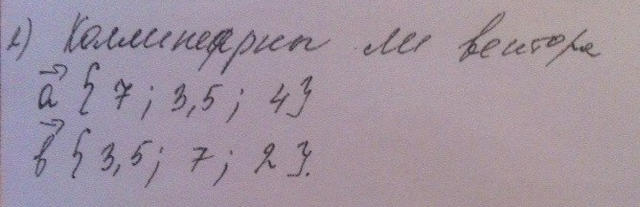 1) Коллинеарны ли вектора
a⃗ { 7 ; 3,5 ; 4}
b⃗ { 3,5 ; 7 ; 2 }.